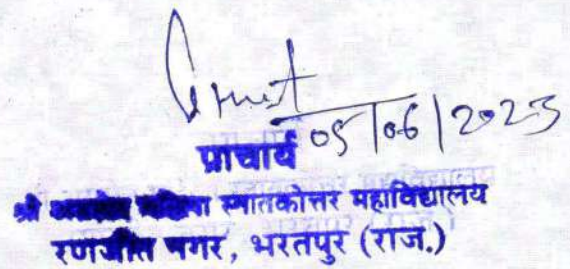 05/06/2023
प्राचार्य
श्री अग्रसेन महिला स्नातकोत्तर महाविद्यालय
रणजीत नगर, भरतपुर (राज.)